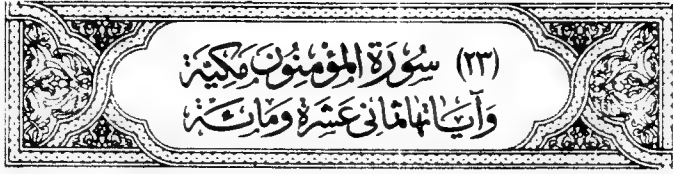 (٢٣) سُورَةُ المؤْمِنُونَ مَكِيَّة
وَآيَاتُهَا ثَمَانِى عَشرَةَ وَمائَة